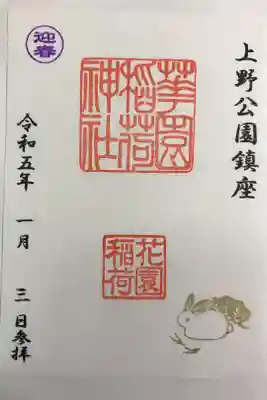 上野公園鎮座
華園
稲荷
神社
花園
稲荷
迎春
令和五年 一月 三日参拝